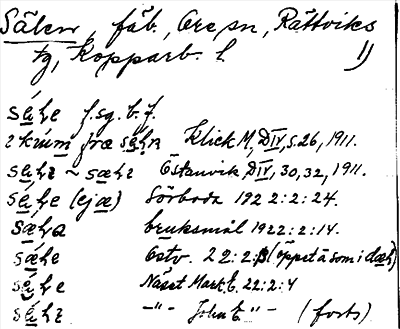 Sälen, fäb, Ore sn, Rättviks
tg, Kopparb. l. 1)
sęhe f.sg.b.f.
kúm fræ sęhn Klick M, DIV, s. 26, 1911.
sęhɛ ~ sæhɛ Östanvik DIV, 30, 32, 1911.
sęhe (ej æ) Sörboda 1922:2:24.
sæhɑ bruksmål 1922:2:14.
sæhe Östv. 22:2: (öppet ä som i dæ)
sęhe Näset Mark E. 22:2:4
sęhɛ -"- John E -"- (forts)